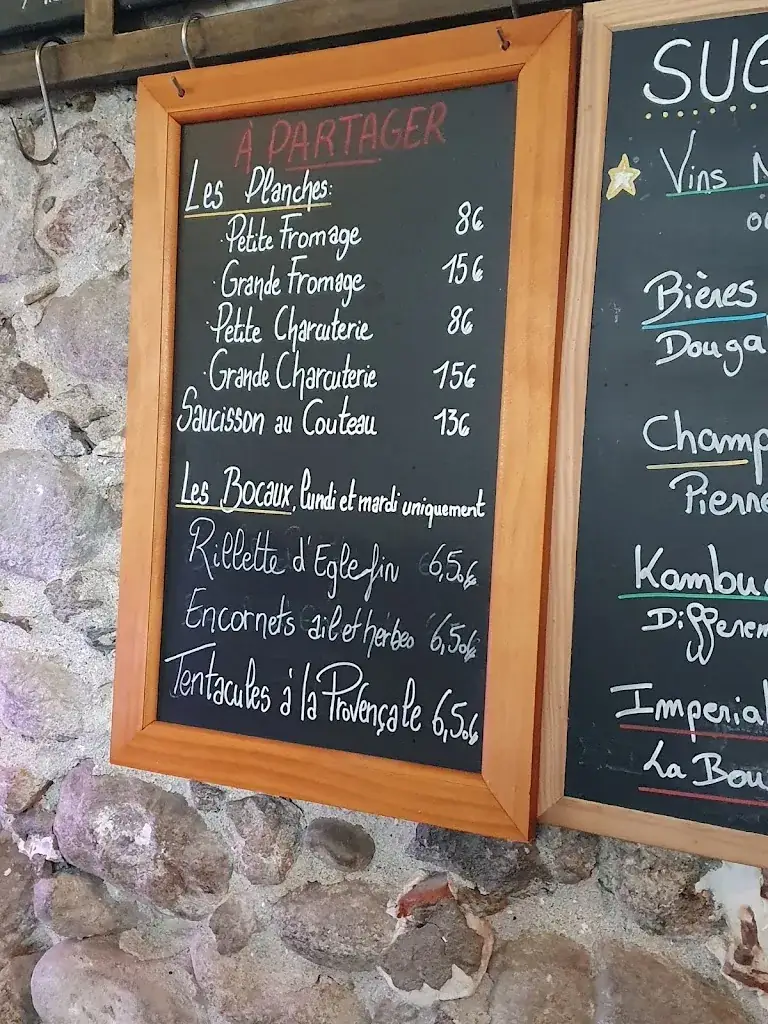 À PARTAGER
Les Planches:
· Petite Fromage 8€
· Grande Fromage 15€
· Petite Charcuterie 8€
· Grande Charcuterie 15€
Saucisson au Couteau 13€
Les Bocaux, lundi et mardi uniquement
Rillette d'Eglefin 6,50€
Encornets ail et herbes 6,50€
Tentacules à la Provençale 6,50€
SUG
Vins N
Bières
Douga
Champ
Pierre
Kambuc
Differem
Imperial
La Bou